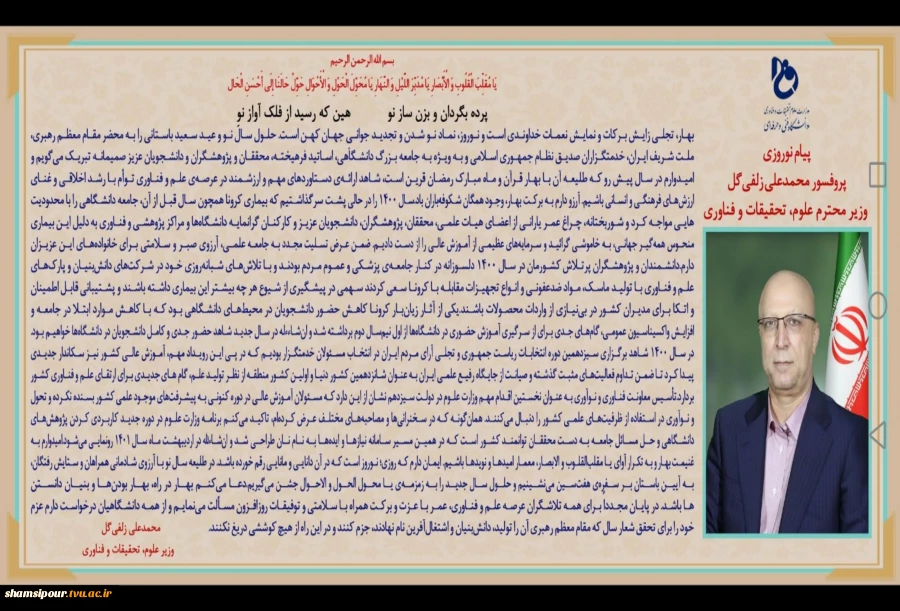 بسم الله الرحمن الرحیم
یَا مُقَلِّبَ الْقُلُوبِ وَ الْأَبْصَارِ یَا مُدَبِّرَ اللَّیْلِ وَ النَّهَارِ یَا مُحَوِّلَ الْحَوْلِ وَ الْأَحْوَالِ حَوِّلْ حَالَنَا إِلَى أَحْسَنِ الْحَالِ
پرده بگردان و بزن ساز نو هین که رسید از فلک آواز نو
بهار، تجلی زایش برکات و نمایش نعمات خداوندی است و نوروز، نماد نو شدن و تجدید جوانی جهان کهن است. حلول سال نو و عید سعید باستانی را به محضر مقام معظم رهبری،
ملت شریف ایران، خدمتگزاران صدیق نظام جمهوری اسلامی و به ویژه به جامعه بزرگ دانشگاهی، اساتید فرهیخته، محققان و پژوهشگران و دانشجویان عزیز صمیمانه تبریک می‌گویم و
امیدوارم در سال پیش رو که طلیعه آن با بهار قرآن و ماه مبارک رمضان قرین است، شاهد ارائه‌ی دستاوردهای مهم و ارزشمند در عرصه‌ی علم و فناوری توأم با رشد اخلاقی و غنای
ارزش‌های فرهنگی و انسانی باشیم. آرزو دارم به برکت بهار، وجود همگان شکوفه‌باران باد.سال ۱۴۰۰ را در حالی پشت سر گذاشتیم که بیماری کرونا همچون سال قبل از آن، جامعه دانشگاهی را با محدودیت
هایی مواجه کرد و شوربختانه، چراغ عمر یارانی از اعضای هیات علمی، محققان، پژوهشگران، دانشجویان عزیز و کارکنان گرانمایه دانشگاه‌ها و مراکز پژوهشی و فناوری به دلیل این بیماری
منحوس همه‌گیر جهانی، به خاموشی گرائید و سرمایه‌های عظیمی از آموزش عالی را از دست دادیم. ضمن عرض تسلیت مجدد به جامعه علمی، آرزوی صبر و سلامتی برای خانواده‌های این عزیزان
دارم.دانشمندان و پژوهشگران پرتلاش کشورمان در سال ۱۴۰۰ دلسوزانه در کنار جامعه‌ی پزشکی و عموم مردم بودند و با تلاش‌های شبانه‌روزی خود در شرکت‌های دانش‌بنیان و پارک‌های
علم و فناوری با تولید ماسک، مواد ضدعفونی و انواع تجهیزات مقابله با کرونا سعی کردند سهمی در پیشگیری از شیوع هر چه بیشتر این بیماری داشته باشند و پشتیبانی قابل اطمینان
و اتکا برای مدیران کشور در بی‌نیازی از واردات محصولات باشند.یکی از آثار زیان‌بار کرونا کاهش حضور دانشجویان در محیط‌های دانشگاهی بود که با کاهش موارد ابتلا در جامعه و
افزایش واکسیناسیون عمومی، گام‌های جدی برای از سرگیری آموزش حضوری در دانشگاه‌ها از اول نیم‌سال دوم برداشته شد و ان‌شاءاله در سال جدید شاهد حضور جدی و کامل دانشجویان در دانشگاه‌ها خواهیم بود.
در سال ۱۴۰۰ شاهد برگزاری سیزدهمین دوره انتخابات ریاست جمهوری و تجلی آرای مردم ایران در انتخاب مسئولان خدمتگزار بودیم که در پی این رویداد مهم، آموزش عالی کشور نیز سکاندار جدیدی
پیدا کرد تا ضمن تداوم فعالیت‌های مثبت گذشته و صیانت از جایگاه رفیع علمی ایران به عنوان شانزدهمین کشور دنیا و اولین کشور منطقه از نظر تولید علم، گام های جدیدی برای ارتقای علم و فناوری کشور
بردارد.تأسیس معاونت فناوری و نوآوری به عنوان نخستین اقدام مهم وزارت علوم در دولت سیزدهم نشان از این دارد که مسئولان آموزش عالی در دوره کنونی به پیشرفت‌های موجود علمی کشور بسنده نکرده و تحول
و نوآوری در استفاده از ظرفیت‌های علمی کشور را دنبال می‌کنند. همان‌گونه که در سخنرانی‌ها و مصاحبه‌های مختلف عرض کرده‌ام، تاکید می‌کنم برنامه وزارت علوم در دوره جدید کاربردی کردن پژوهش‌های
دانشگاهی و حل مسائل جامعه به دست محققان توانمند کشور است که در همین مسیر سامانه نیازها و ایده‌ها به نام نان طراحی شد و ان‌شاالله در اردیبهشت ماه سال ۱۴۰۱ رونمایی می‌شود.امیدوارم به
غنیمت بهار و به تکرار آوای یا مقلب‌القلوب و الابصار، معمار امیدها و نویدها باشیم. ایمان دارم که روزی؛ نوروز است که در آن دانایی و مانایی رقم خورده باشد. در طلیعه سال نو با آرزوی شادمانی همراهان و ستایش رفتگان،
به آیین باستان بر سفره‌ی هفت‌سین می‌نشینیم و حلول سال جدید را به زمزمه‌ی یا محول الحول و الاحوال جشن می‌گیریم.دعا می‌کنم بهار در راه، بهار بودن‌ها و بنیان دانستن
ها باشد. در پایان مجددا برای همه تلاشگران عرصه علم و فناوری، عمر با عزت و برکت همراه با سلامتی و توفیقات روزافزون مسألت می‌نمایم و از همه دانشگاهیان درخواست دارم عزم
خود را برای تحقق شعار سال که مقام معظم رهبری آن را تولید، دانش‌بنیان و اشتغال‌آفرین نام نهادند، جزم کنند و در این راه از هیچ کوششی دریغ نکنند.
محمدعلی زلفی گل
وزیر علوم، تحقیقات و فناوری
وزارت علوم، تحقیقات و فناوری
دانشگاه فنی و حرفه‌ای
پیام نوروزی
پروفسور محمدعلی زلفی گل
وزیر محترم علوم، تحقیقات و فناوری
shamsipour.tvu.ac.ir